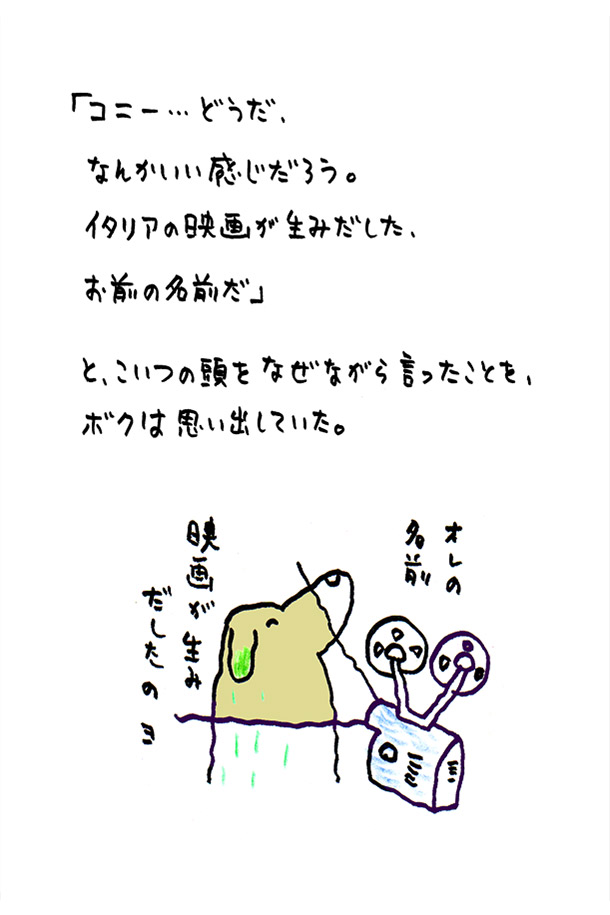 「コニー…どうだ、
なんかいい感じだろう。
イタリアの映画が生みだした、
お前の名前だ」
と、こいつの頭をなぜながら言ったことを、
ボクは思い出していた。
オレの
名前
映画が生み
だしたのヨ